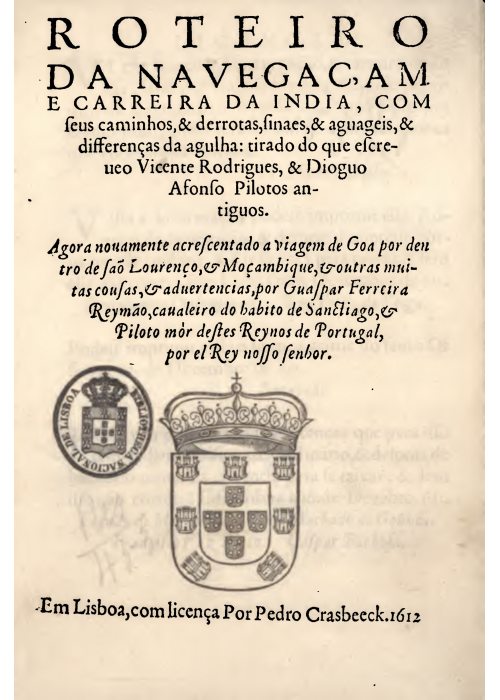 ROTEIRO
DA NAVEGAC,AM
E CARREIRA DA INDIA, COM
ſeus caminhos, & derrotas, ſinaes, & aguageis, &
differenças da agulha: tirado do que eſcre-
ueo Vicente Rodrigues, & Dioguo
Afonſo Pilotos an-
tiguos.
Agora nouamente acreſcentado a viagem de Goa por den
tro de ſaõ Lourenço, & Moçambique, & outras mui-
tas couſas, & aduertencias, por Guaſpar Ferreira
Reymão, caualeiro do habito de Sanctiago, &
Piloto mòr deſtes Reynos de Portugal,
por el Rey noſſo ſenhor.
BIBLIOTHECA NACIONAL DE LISBOA
Em Lisboa, com licença Por Pedro Crasbeeck. 1612